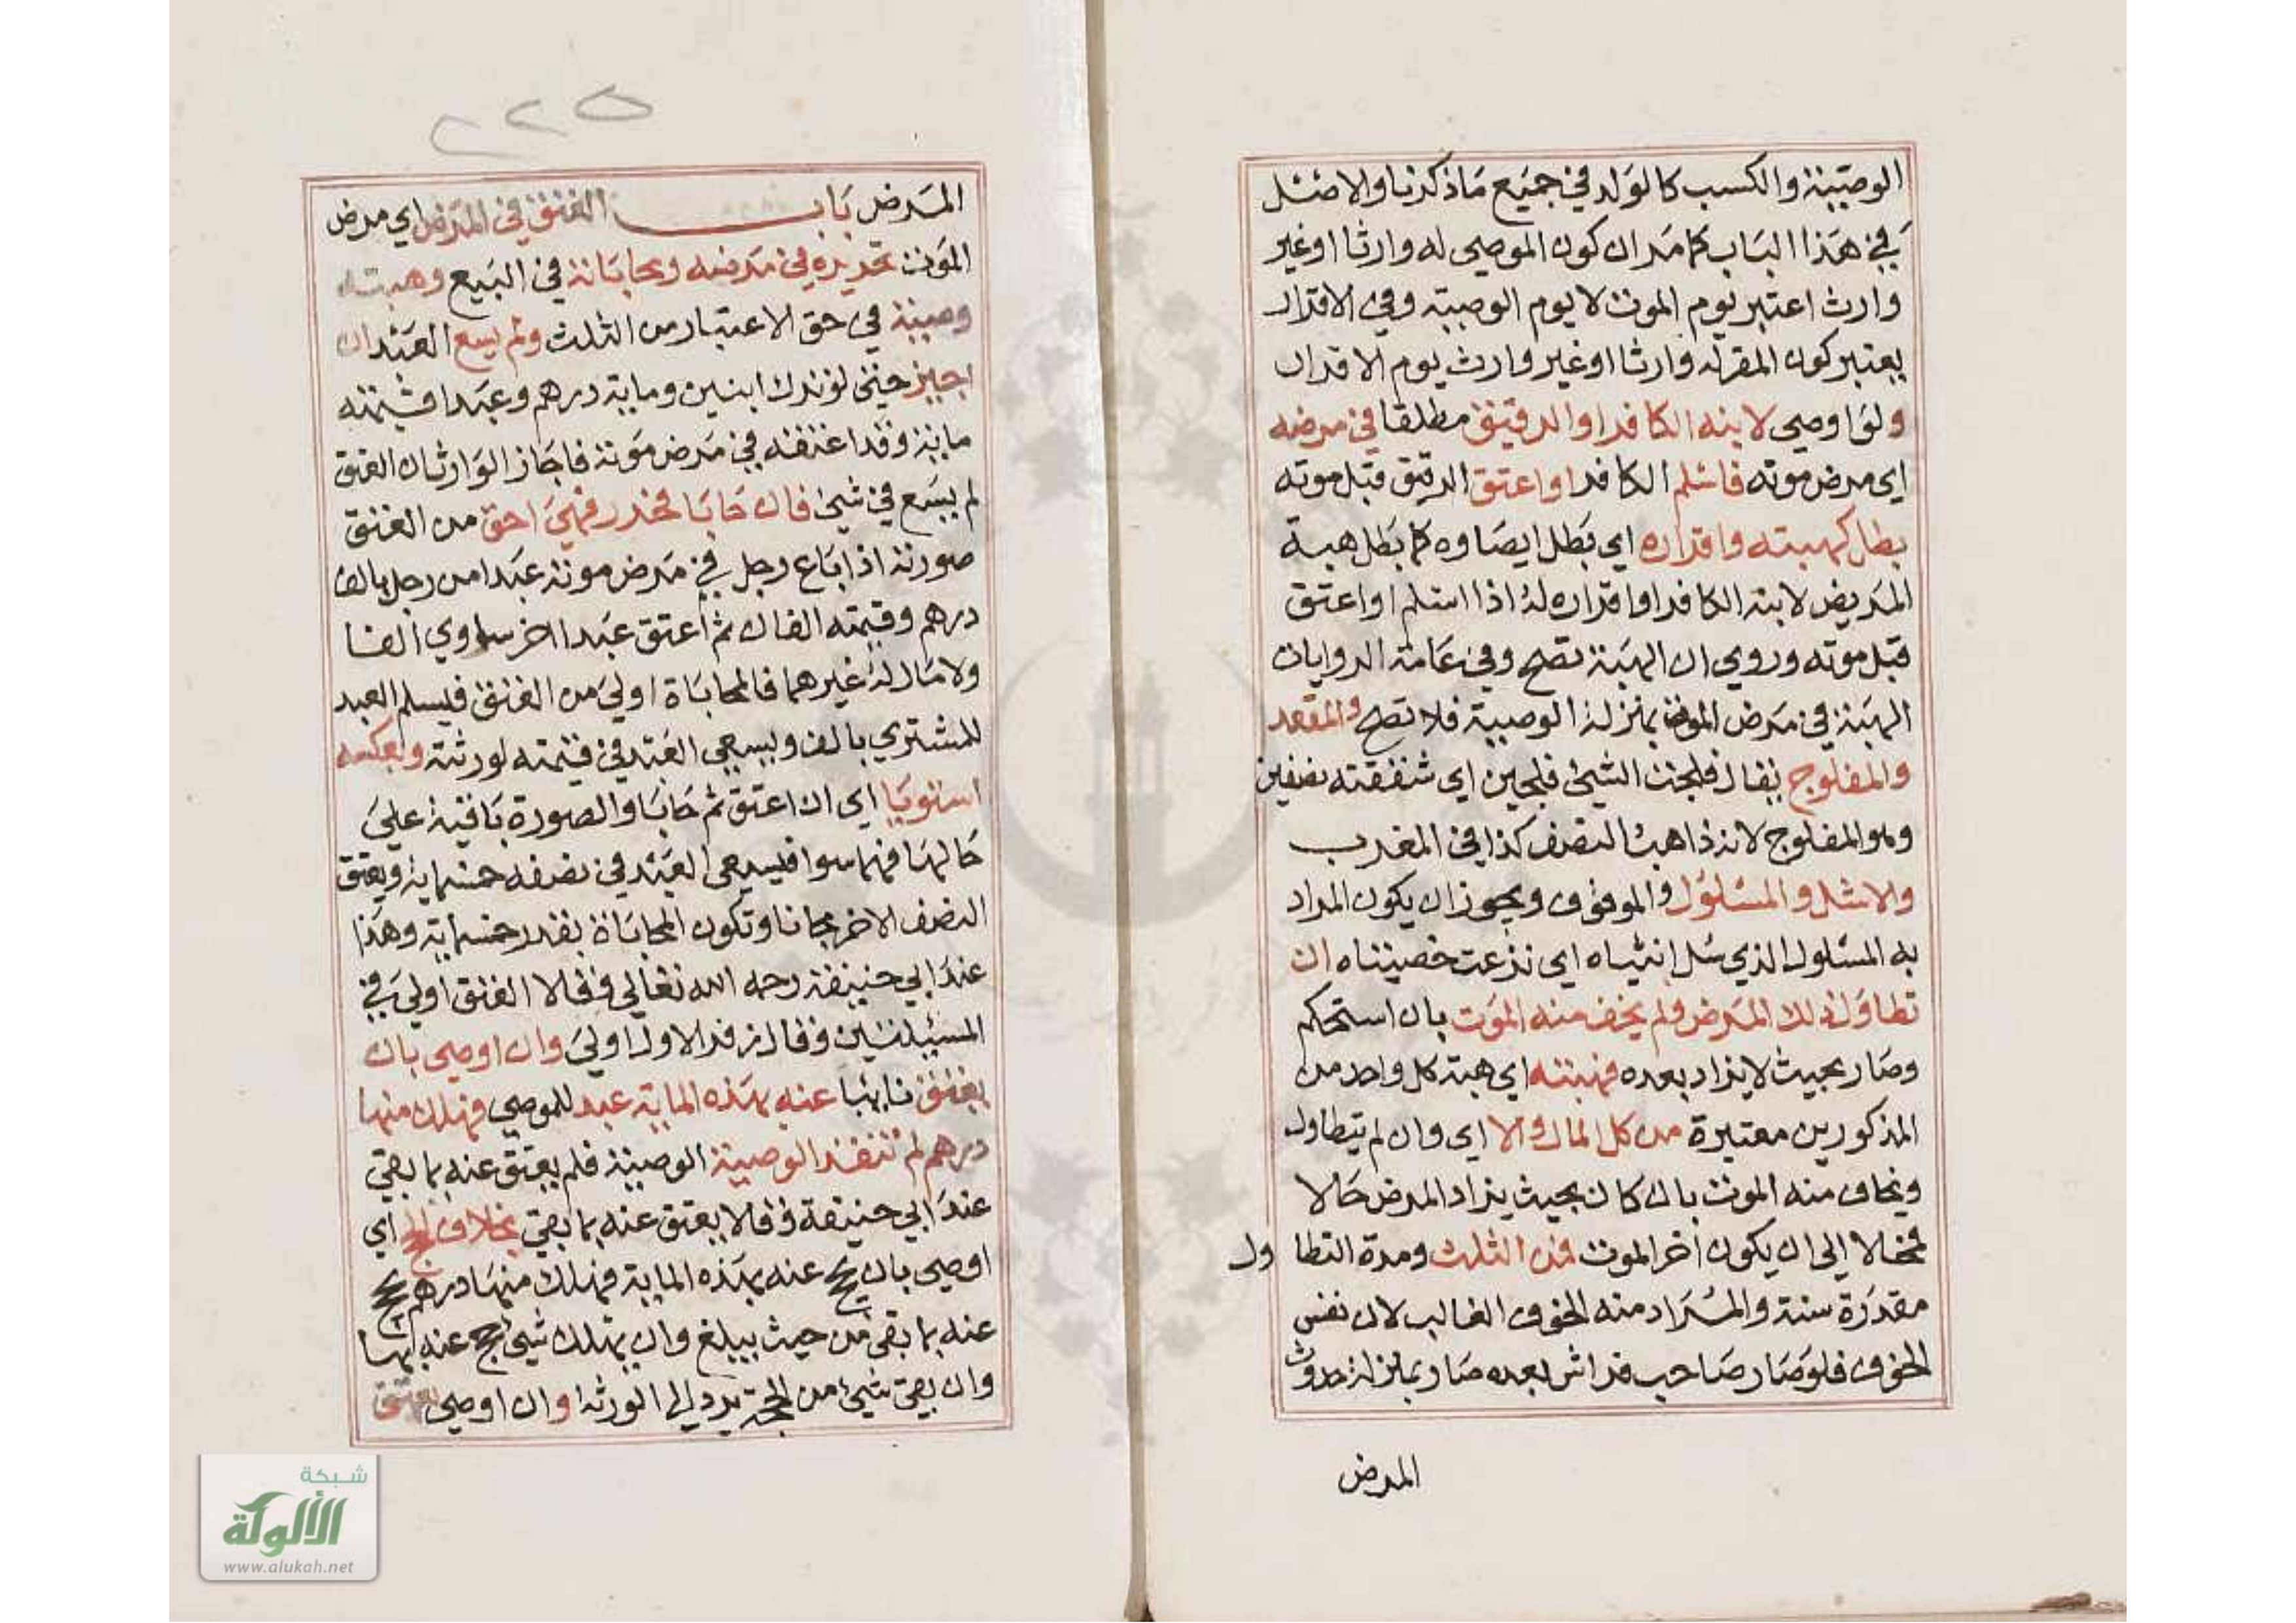 الوصية والكسب كالولد في جميع ما ذكرنا والاصل
في هذا الباب كما مر ان كون الموصي له وارثا او غير
وارث اعتبر يوم الموت لا يوم الوصية وفي الاقرار
يعتبر كون المقر له وارثا او غير وارث يوم الاقرار
ولو اوصي لابنه الكافر او الرقيق مطلقا في مرضه
اي مرض موته فاسلم الكافر او اعتق الرقيق قبل موته
بطل كهبته واقراره اي بطل ايصاوه كما بطل هبة
المريض لابنه الكافر او اقراره له اذا اسلم او اعتق
قبل موته وروي ان الهبة تصح وفي عامة الروايات
الهبة في مرض الموت بمنزلة الوصية فلا تصح والمقعد
والمفلوج يقال فلجت الشيء فلجين اي شققته نصفين
وهو المفلوج لانه ذاهب النصف كذا في المغرب
والاشل والمسلول والموقوف ويجوز ان يكون المراد
به المسلول الذي سل انثياه اي نزعت خصيتاه ان
تطاول ذلك المرض ولم يخف منه الموت بان استحكم
وصار بحيث لا يزاد بعده فهبته اي هبة كل واحد من
المذكورين معتبرة من كل المال والا اي وان لم يتطاول
ويخاف منه الموت بان كان بحيث يزاد المرض حالا
فحالا الى ان يكون اخر الموت فمن الثلث ومدة التطاول
مقدرة سنة والمراد منه الخوف الغالب لان نفس
الخوف فلو صار صاحب فراش بعده صار بمنزلة حدوث
المرض
٢٢٥
المرض باب العتق في المرض اي مرض
الموت تحريره في مرضه ومحاباته في البيع وهبته
وصية في حق الاعتبار من الثلث ولم يسع العبد ان
اجيز حتى لو ترك ابنين ومايه درهم وعبدا قيمته
مايه وقد اعتقه في مرض موته فاجاز الوارثان العتق
لم يسع في شيء فان حابا فحرر فهي احق من العتق
صورته اذا باع رجل في مرض موته عبدا من رجل بالف
درهم وقيمته الفان ثم اعتق عبدا اخر ساوي الفا
ولا مال له غيرهما فالمحاباة اولي من العتق فيسلم العبد
للمشتري بالف ويسعي العبد في قيمته لورثته وبعكسه
استويا اي ان اعتق ثم حابا والصورة باقية علي
حالها فهما سوا فيسعي العبد في نصفه خمسمايه ويعتق
النصف الاخر مجانا وتكون المحاباة بقدر خمسماية وهذا
عند ابي حنيفة رحمه الله تعالي وقالا العتق اولي في
المسيلتين وقال زفر الاول اولي وان اوصي بان
يعتق نايبا عنه بهذه الماية عبد للموصي فهلك منها
درهم لم تنفذ الوصية الوصية فلم يعتق عنه بما بقي
عند ابي حنيفة وقالا يعتق عنه بما بقي بخلاف الحج اي
اوصي بان يحج عنه بهذه الماية فهلك منها درهم يحج
عنه بما بقي من حيث يبلغ وان يهلك شي حج عنه بها
وان بقي شيئ من الحجة يرد الى الورثة وان اوصي بعتق
شبكة
الألوكة
www.alukah.net